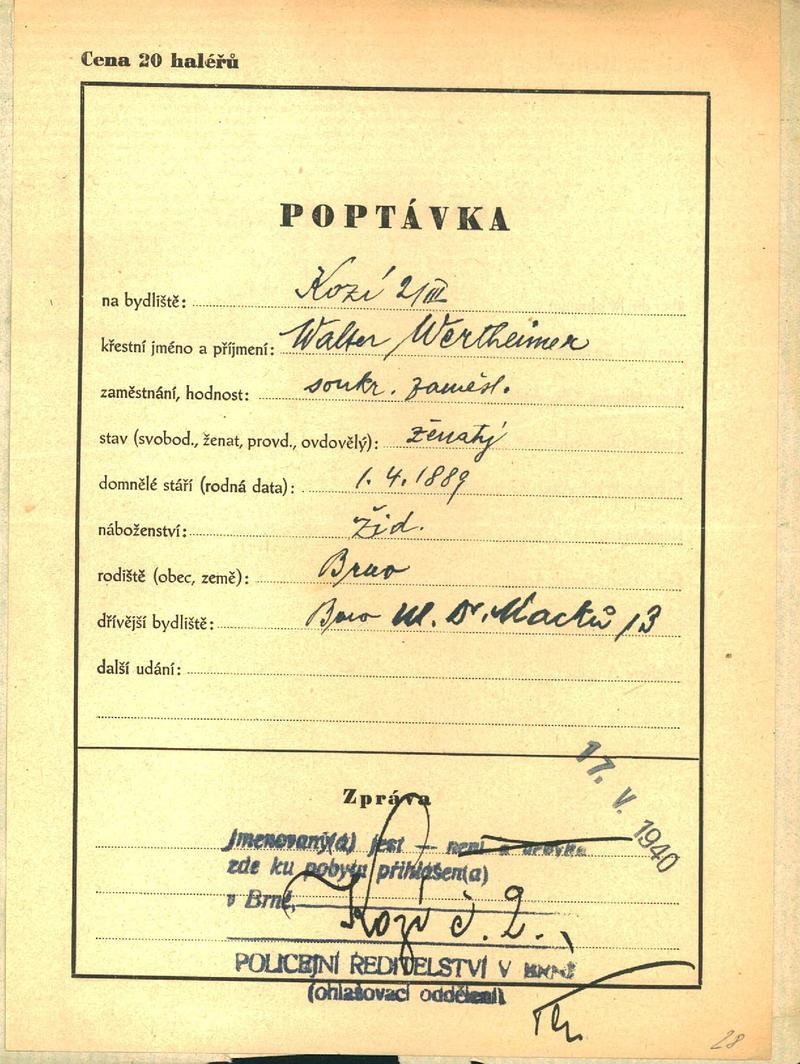 Cena 20 haléřů
POPTÁVKA
na bydliště: Kozí 2/III
křestní jméno a příjmení: Walter Wertheimer
zaměstnání, hodnost: soukr. zaměst.
stav (svobod., ženat, provd., ovdovělý): ženatý
domnělé stáří (rodná data): 1. 4. 1889
náboženství: žid.
rodiště (obec, země): Brno
dřívější bydliště: Brno ul. Dr. Macků 13
další udání:
17. V. 1940
Zpráva
Jmenovaný(á) jest — není
zde ku pobytu přihlášen(a)
v Brně,
Kozí č. 2.
POLICEJNÍ ŘEDITELSTVÍ V BRNĚ
(ohlašovací oddělení)
28